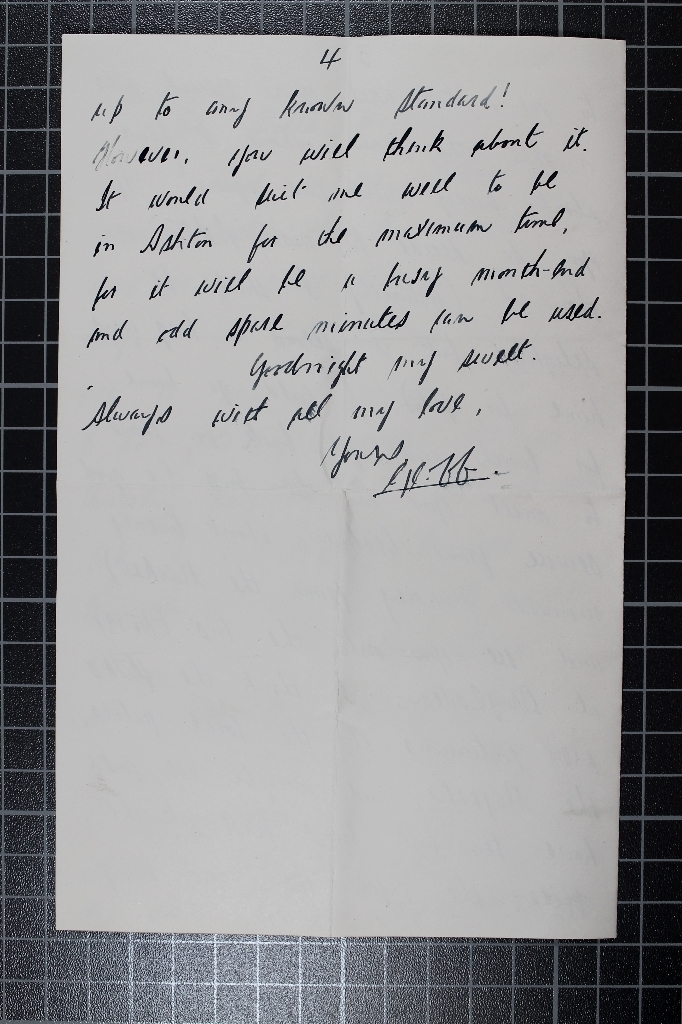 4
up to any known standard!
However, you will think about it.
It would suit me well to be
in Ashton for the maximum time,
for it will be a busy month-end
and odd spare minutes can be used.
Goodnight my sweet.
Always with all my love,
Yours